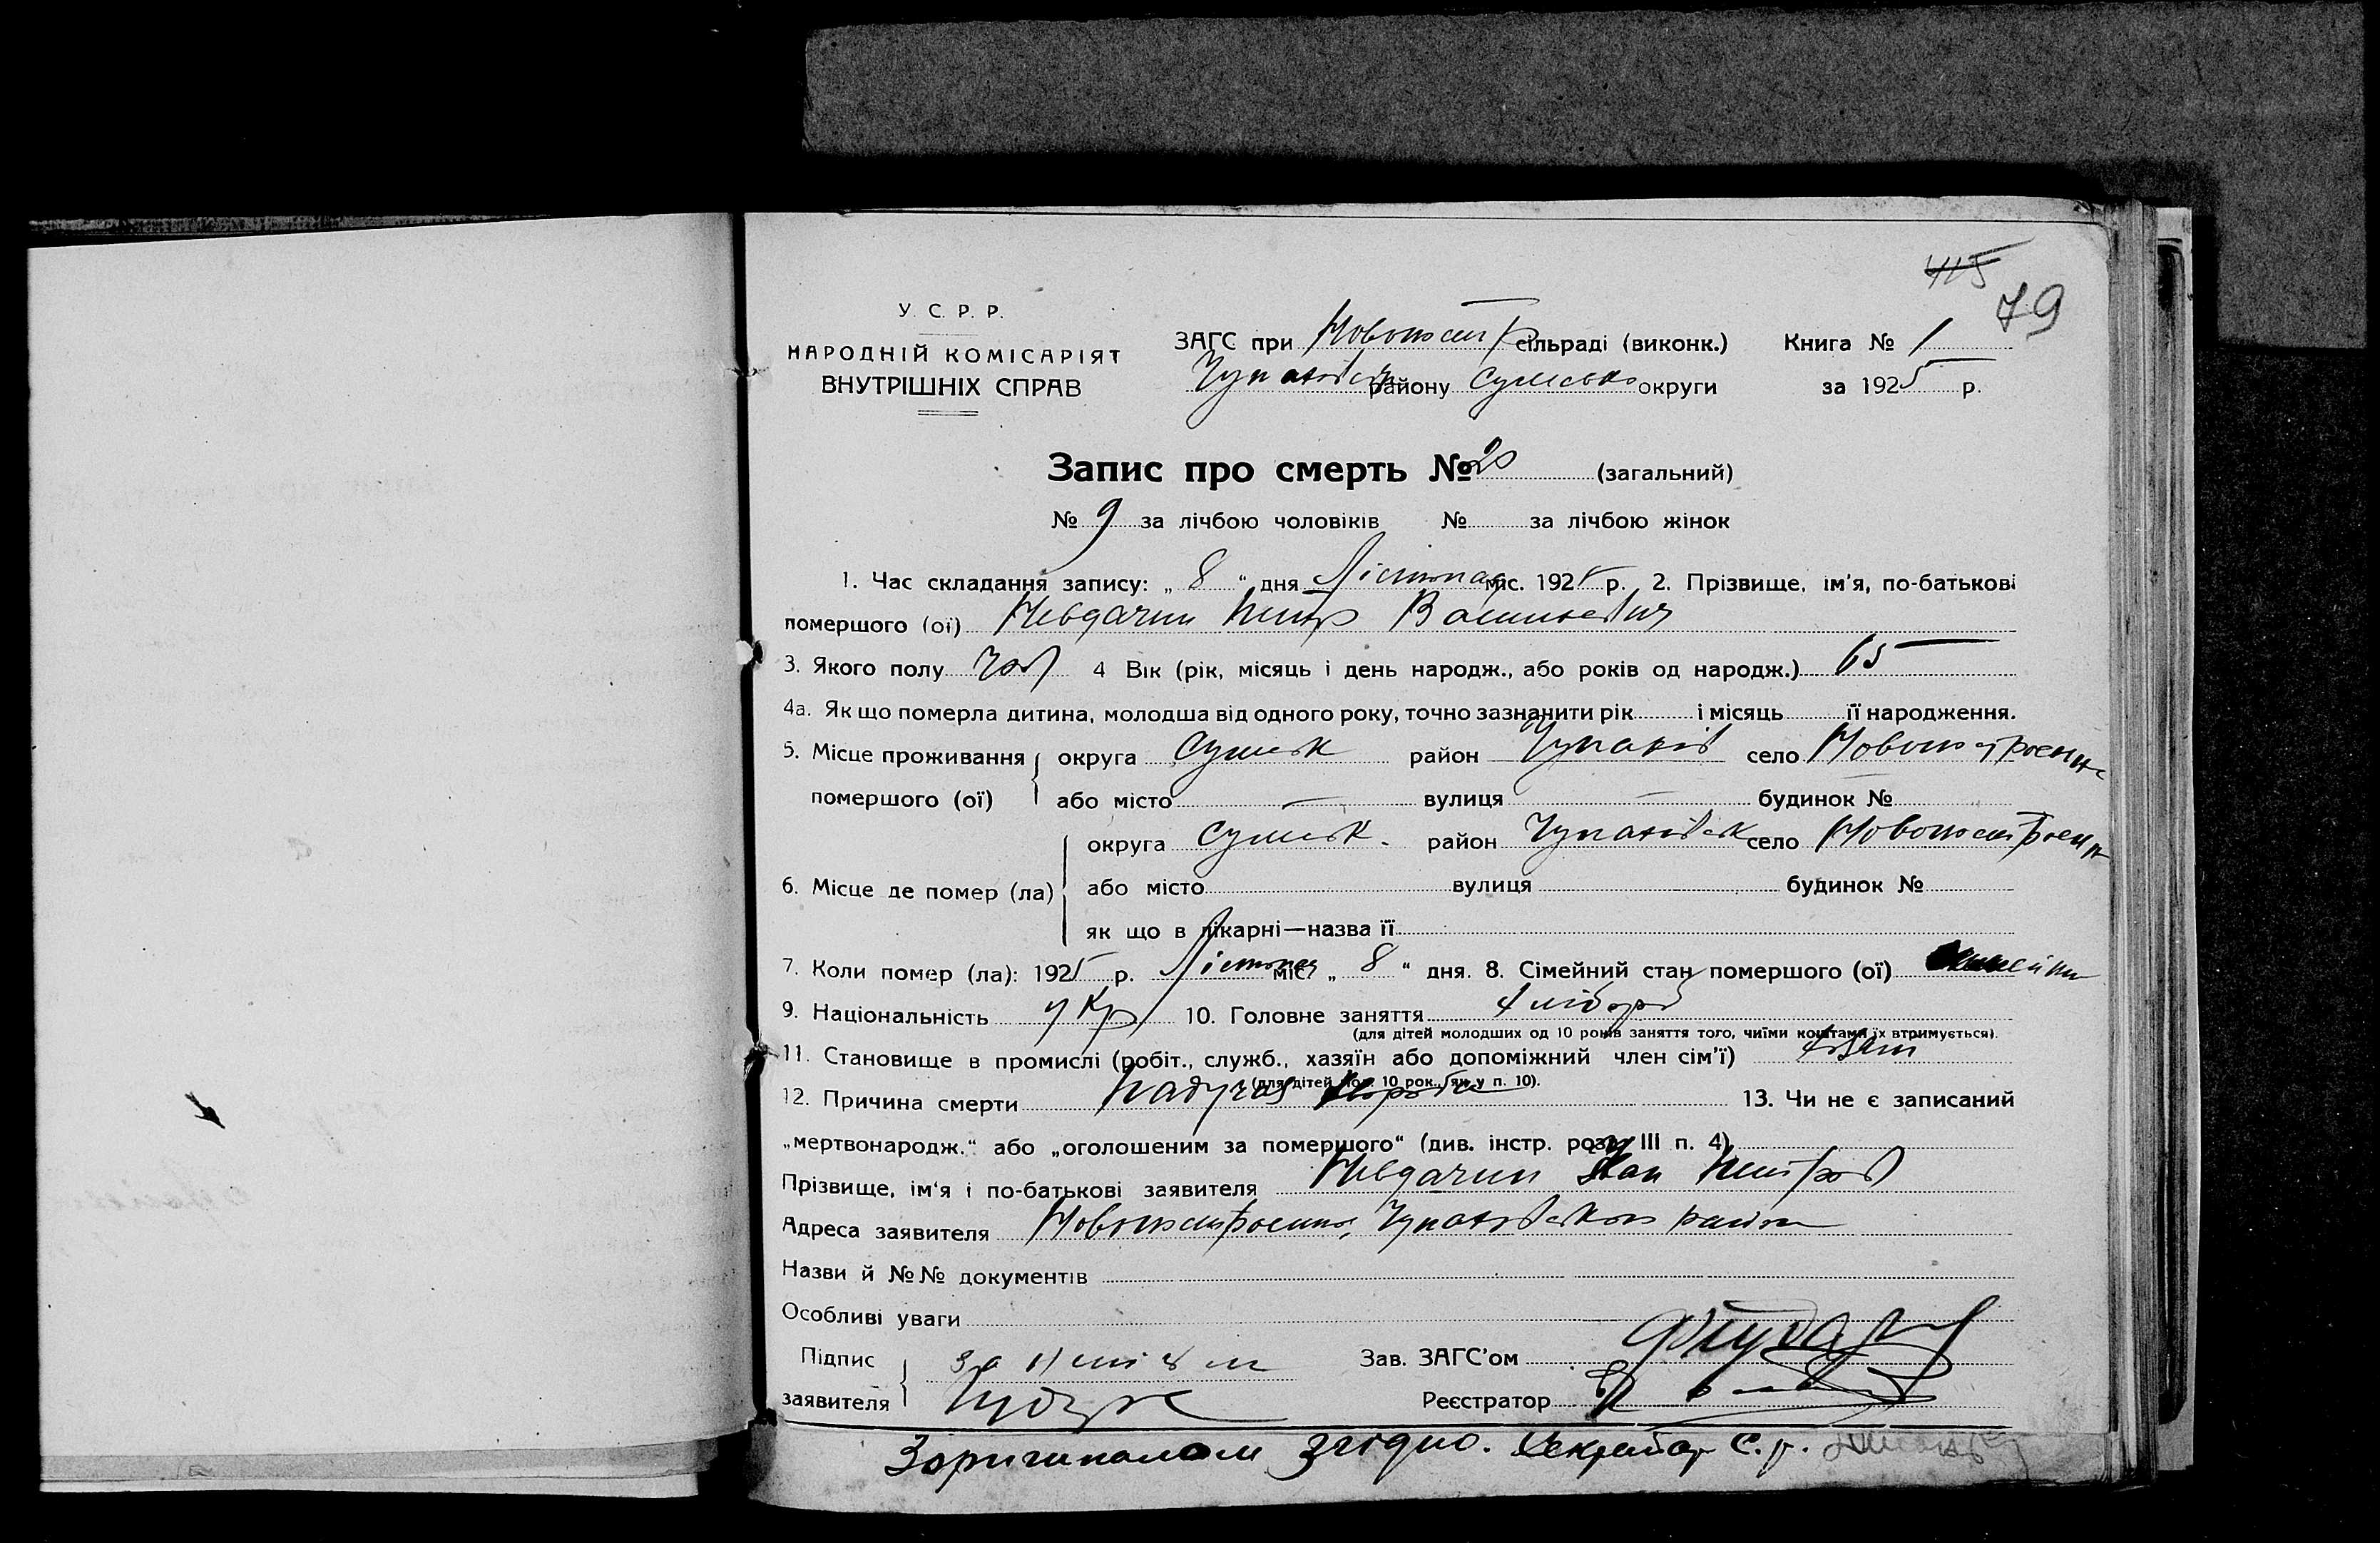 415
79
У. С. Р. Р.
НАРОДНІЙ КОМІСАРІЯТ
ВНУТРІШНІХ СПРАВ
ЗАГС при Новопостр сільраді (виконк.) Книга № 1
району Сумсько округи за 1925 р.
Запис про смерть № 20 (загальний)
№ 9 за лічбою чоловіків № за лічбою жінок
1. Час складання запису: „ 8 “ дня Лістопад міс. 1925 р. 2. Прізвище, ім'я, по-батькові
помершого (ої) Невдачин Петр Васильевич
3. Якого полу чол 4 Вік (рік, місяць і день народж., або років од народж.) 65
4а. Як що померла дитина, молодша від одного року, точно зазначити рік і місяць її народження.
5. Місце проживання округа Сумськ район Чупахів село Новопостроенне
помершого (ої) або місто — вулиця — будинок №
округа Сумськ. район Чупахівськ село Новопостроенн
6. Місце де помер (ла) або місто вулиця будинок №
як що в лікарні—назва її
7. Коли помер (ла): 1925 р. Лістопад міс. „ 8 “ дня. 8. Сімейний стан помершого (ої)
9. Національність Укр 10. Головне заняття хлібороб
(для дітей молодших од 10 років заняття того, чиїми коштами їх втримується).
11. Становище в промислі (робіт., служб., хазяїн або допоміжний член сім'ї)
(для дітей мол. 10 рок., як у п. 10).
12. Причина смерти Падучая 13. Чи не є записаний
„мертвонародж.“ або „оголошеним за помершого“ (див. інстр. розд. III п. 4)
Прізвище, ім'я і по-батькові заявителя Невдачин Іван Петров
Адреса заявителя Новопостроенне, Чупахівського район
Назви й №№ документів
Особливі уваги
Підпис За
заявителя
Зав. ЗАГС'ом
Реєстратор
Зоригиналом згідно. Секретар С. р.